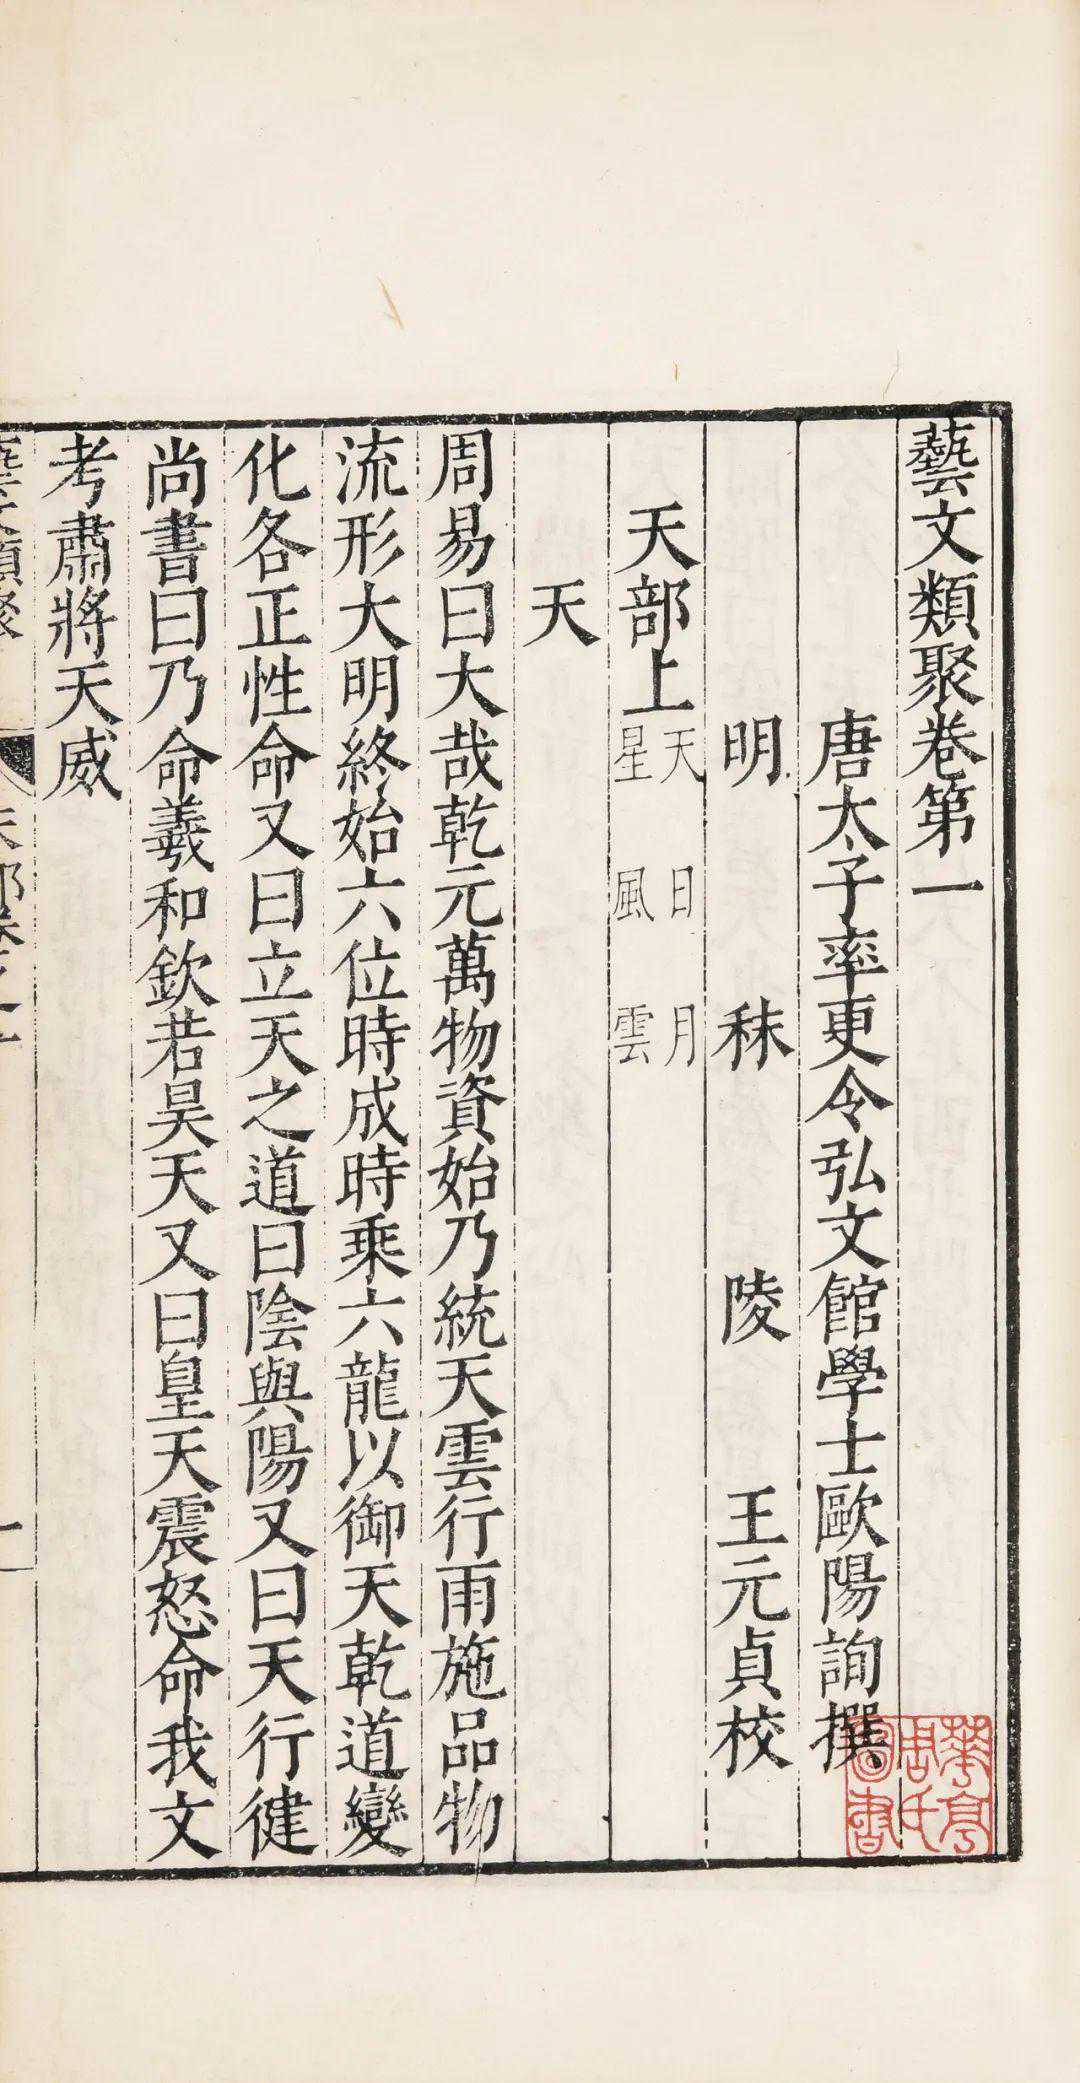 藝文類聚卷第一
唐太子率更令弘文館學士歐陽詢撰
明 秣 陵 王元貞校
天部上 天 日 月
星 風 雲
天
周易曰大哉乾元萬物資始乃統天雲行雨施品物
流形大明終始六位時成時乘六龍以御天乾道變
化各正性命又曰立天之道曰陰與陽又曰天行健
尚書曰乃命羲和欽若昊天又曰皇天震怒命我文
考肅將天威
藝文類聚
天部卷之一
一
華亭
唐氏
圖書